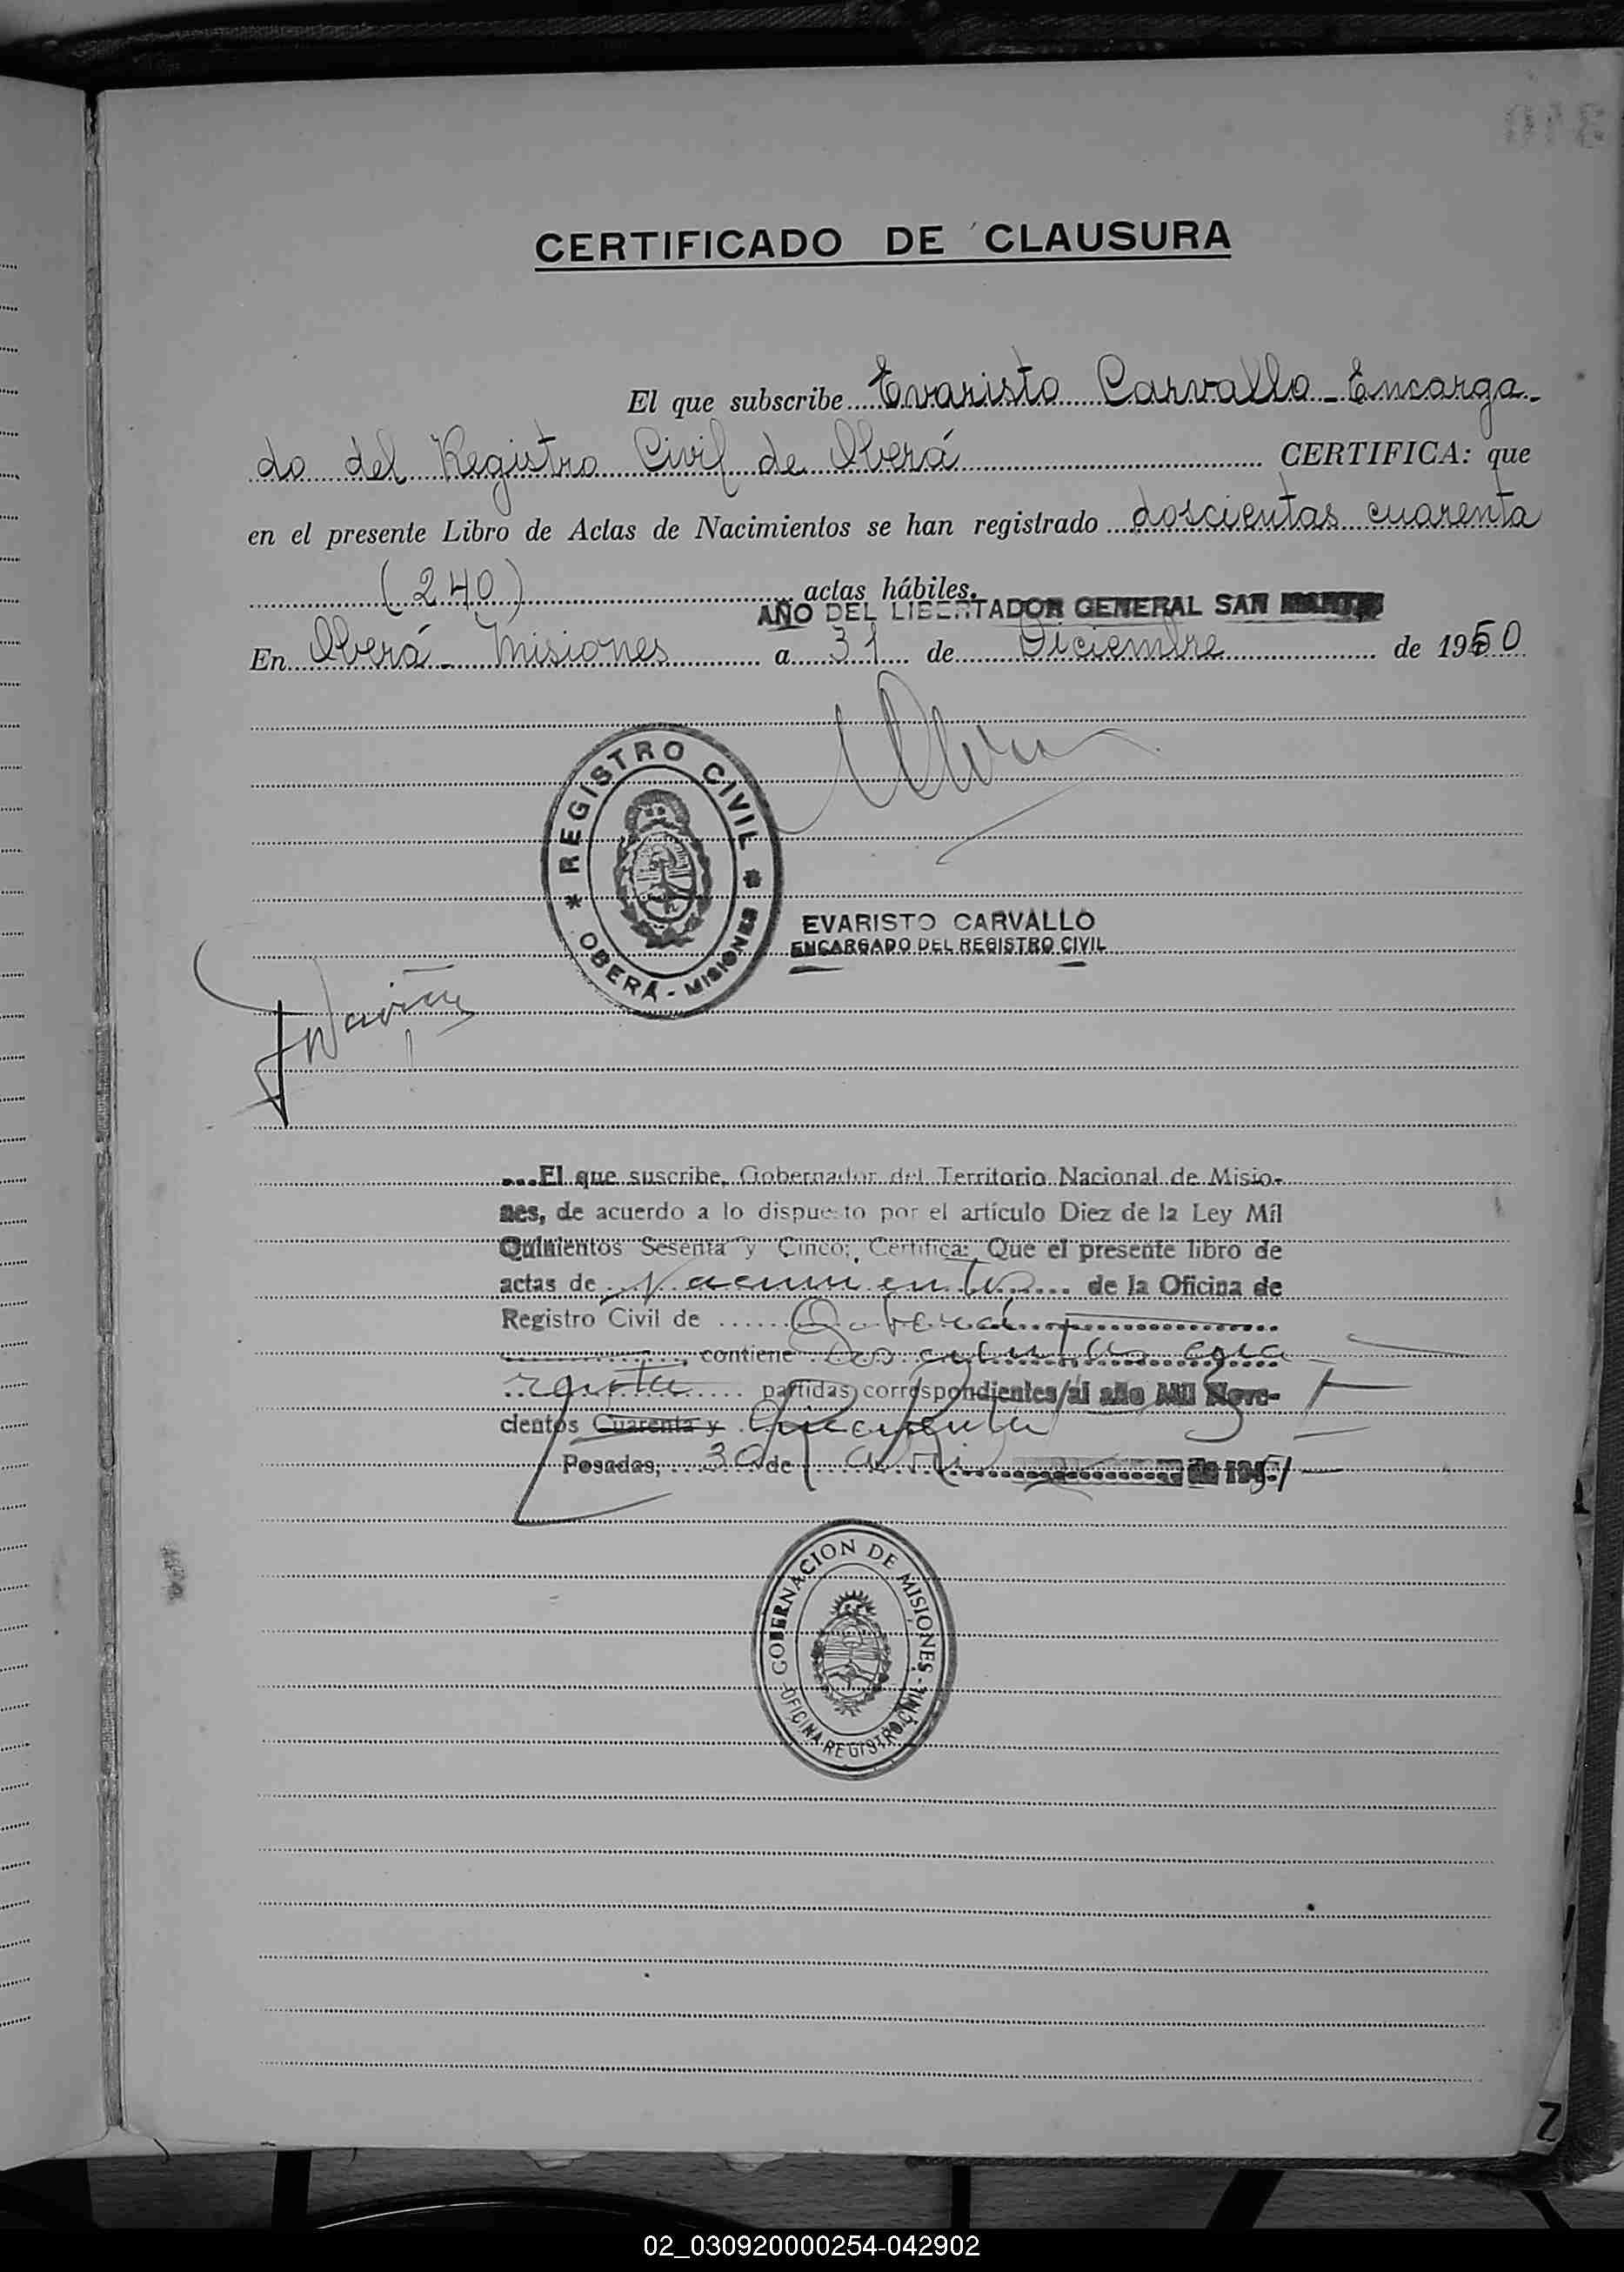 CERTIFICADO DE CLAUSURA
El que subscribe Evaristo Carvallo - Encarga-
do del Registro Civil de Oberá CERTIFICA: que
en el presente Libro de Actas de Nacimientos se han registrado doscientas cuarenta
(240) actas hábiles.
AÑO DEL LIBERTADOR GENERAL SAN MARTIN
En Oberá - Misiones a 31 de Diciembre de 1950
* REGISTRO CIVIL *
OBERÁ - MISIONES
EVARISTO CARVALLO
ENCARGADO DEL REGISTRO CIVIL
El que suscribe, Gobernador del Territorio Nacional de Misio-
nes, de acuerdo a lo dispuesto por el artículo Diez de la Ley Mil
Quinientos Sesenta y Cinco; Certifica: Que el presente libro de
actas de Nacimientos de la Oficina de
Registro Civil de Oberá
contiene doscientas cua
renta partidas correspondientes/al año Mil Nove-
cientos Cuarenta y Cincuenta
Posadas, 30 de abril de 1951
GOBERNACION DE MISIONES -
OFICINA REGISTRO CIVIL -
02_030920000254-042902